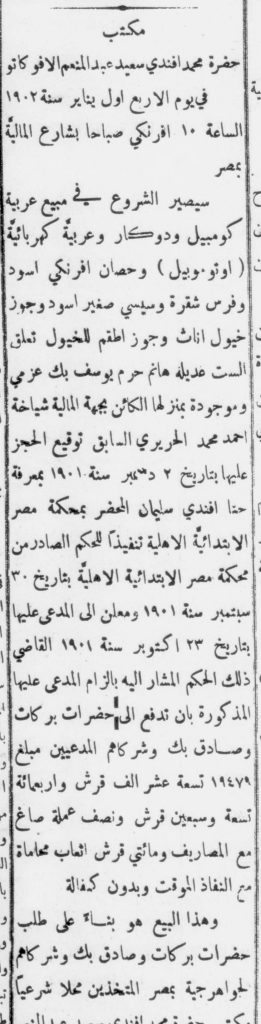 مكتب
حضرة محمد افندي سعيد عبد المنعم الافوكاتو
في يوم الاربع اول يناير سنة ١٩٠٢
الساعة ١٠ افرنكي صباحا بشارع المالية
بمصر
سيصير الشروع في مبيع عربية
كومبيل ودوكار وعربية كهربائية
( اوتوموبيل ) وحصان افرنكي اسود
وفرس شقرة وسيسي صغير اسود وجوز
خيول اناث وجوز اطقم للخيول تعلق
الست عديله هانم حرم يوسف بك عزمي
وموجودة بمنزلها الكائن بجهة المالية شياخة
احمد محمد الحريري السابق توقيع الحجز
عليها بتاريخ ٢ دسمبر سنة ١٩٠١ بمعرفة
حنا افندي سليمان المحضر بمحكمة مصر
الابتدائية الاهلية تنفيذا للحكم الصادر من
محكمة مصر الابتدائية الاهلية بتاريخ ٣٠
سبتمبر سنة ١٩٠١ ومعلن الى المدعى عليها
بتاريخ ٢٣ اكتوبر سنة ١٩٠١ القاضي
ذلك الحكم المشار اليه بالزام المدعى عليها
المذكورة بان تدفع الى حضرات بركات
وصادق بك وشركاهم المدعيين مبلغ
١٩٤٧٩ تسعة عشر الف قرش واربعمائة
تسعة وسبعين قرش ونصف عملة صاغ
مع المصاريف ومائتي قرش اتعاب محاماة
مع النفاذ الموقت وبدون كفالة
وهذا البيع هو بناءً على طلب
حضرات بركات وصادق بك وشركاهم
الجواهرجية بمصر المتخذين محلا شرعيا
مكتب حضرة محمد افندي سعيد عبد المنعم